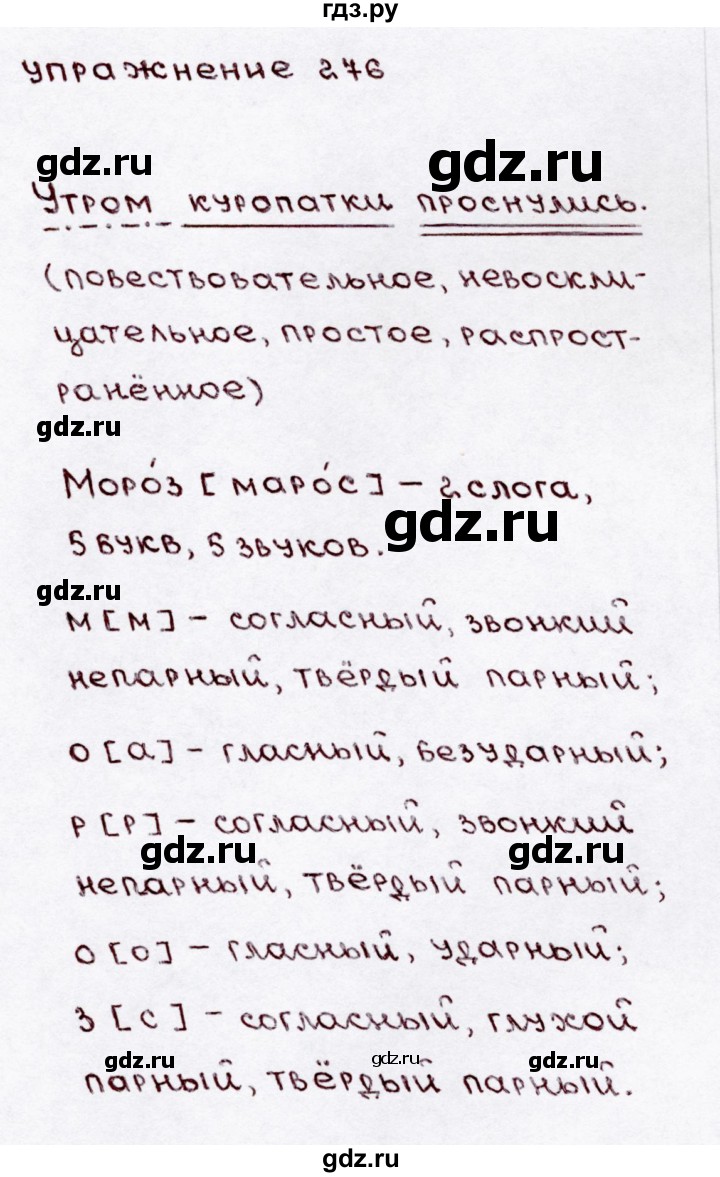 гдз.ру
упражнение 276
gdz.ru
gdz.ru
Утром куропатки проснулись.
(повествовательное, невоскли-
цательное, простое, распрост-
ранённое)
gdz.ru
Моро́з [маро́с] – 2 слога,
gdz.ru
5 букв, 5 звуков.
gdz.ru
м [м] – согласный, звонкий
непарный, твёрдый парный;
о [а] – гласный, безударный;
р [р] – согласный, звонкий
gdz.ru
gdz.ru
непарный, твёрдый парный;
о [о] – гласный, ударный;
з [с] – согласный, глухой
gdz.ru
gdz.ru
gdz.ru
парный, твёрдый парный.
gdz.ru